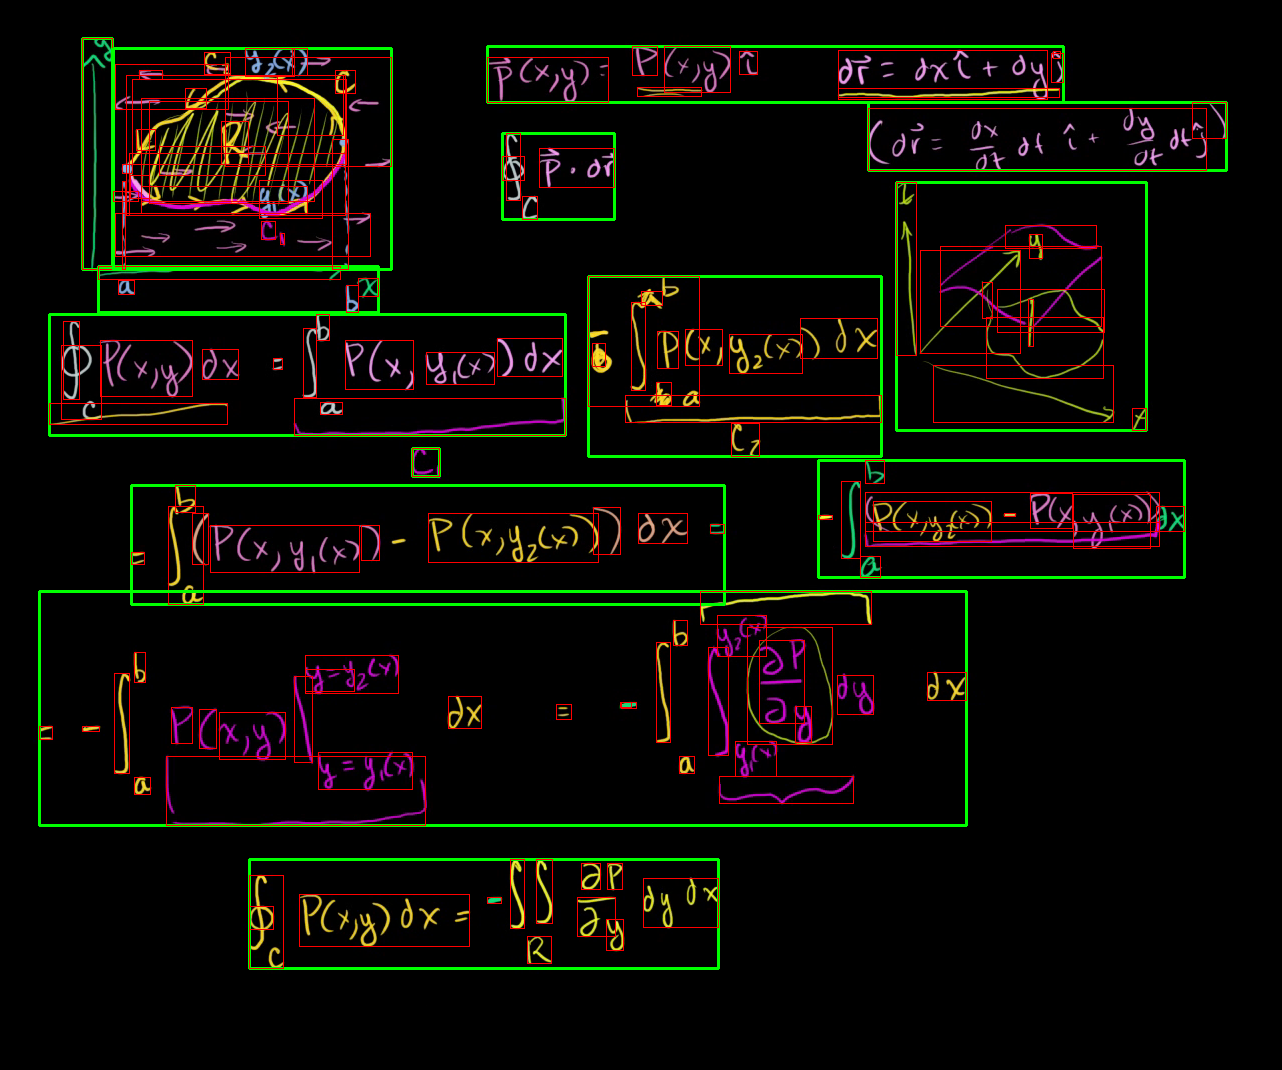 y C₂ y₂(x) C
R
y₁(x)
C₁
a b x
P⃗(x,y) = P(x,y) î dr⃗ = dx î + dy ĵ
(dr⃗ = dx/dt dt î + dy/dt dt ĵ)
∮_C P⃗ · dr⃗
y
x
∮_C P(x,y) dx = ∫_a^b P(x, y₁(x)) dx
C₁
- ∫_a^b P(x, y₂(x)) dx
C₂
= ∫_a^b (P(x,y₁(x)) - P(x,y₂(x))) dx =
- ∫_a^b (P(x,y₂(x)) - P(x,y₁(x))) dx
= - ∫_a^b P(x,y) |_{y=y₁(x)}^{y=y₂(x)} dx = - ∫_a^b ∫_{y₁(x)}^{y₂(x)} ∂P/∂y dy dx
∮_C P(x,y) dx = - ∬_R ∂P/∂y dy dx